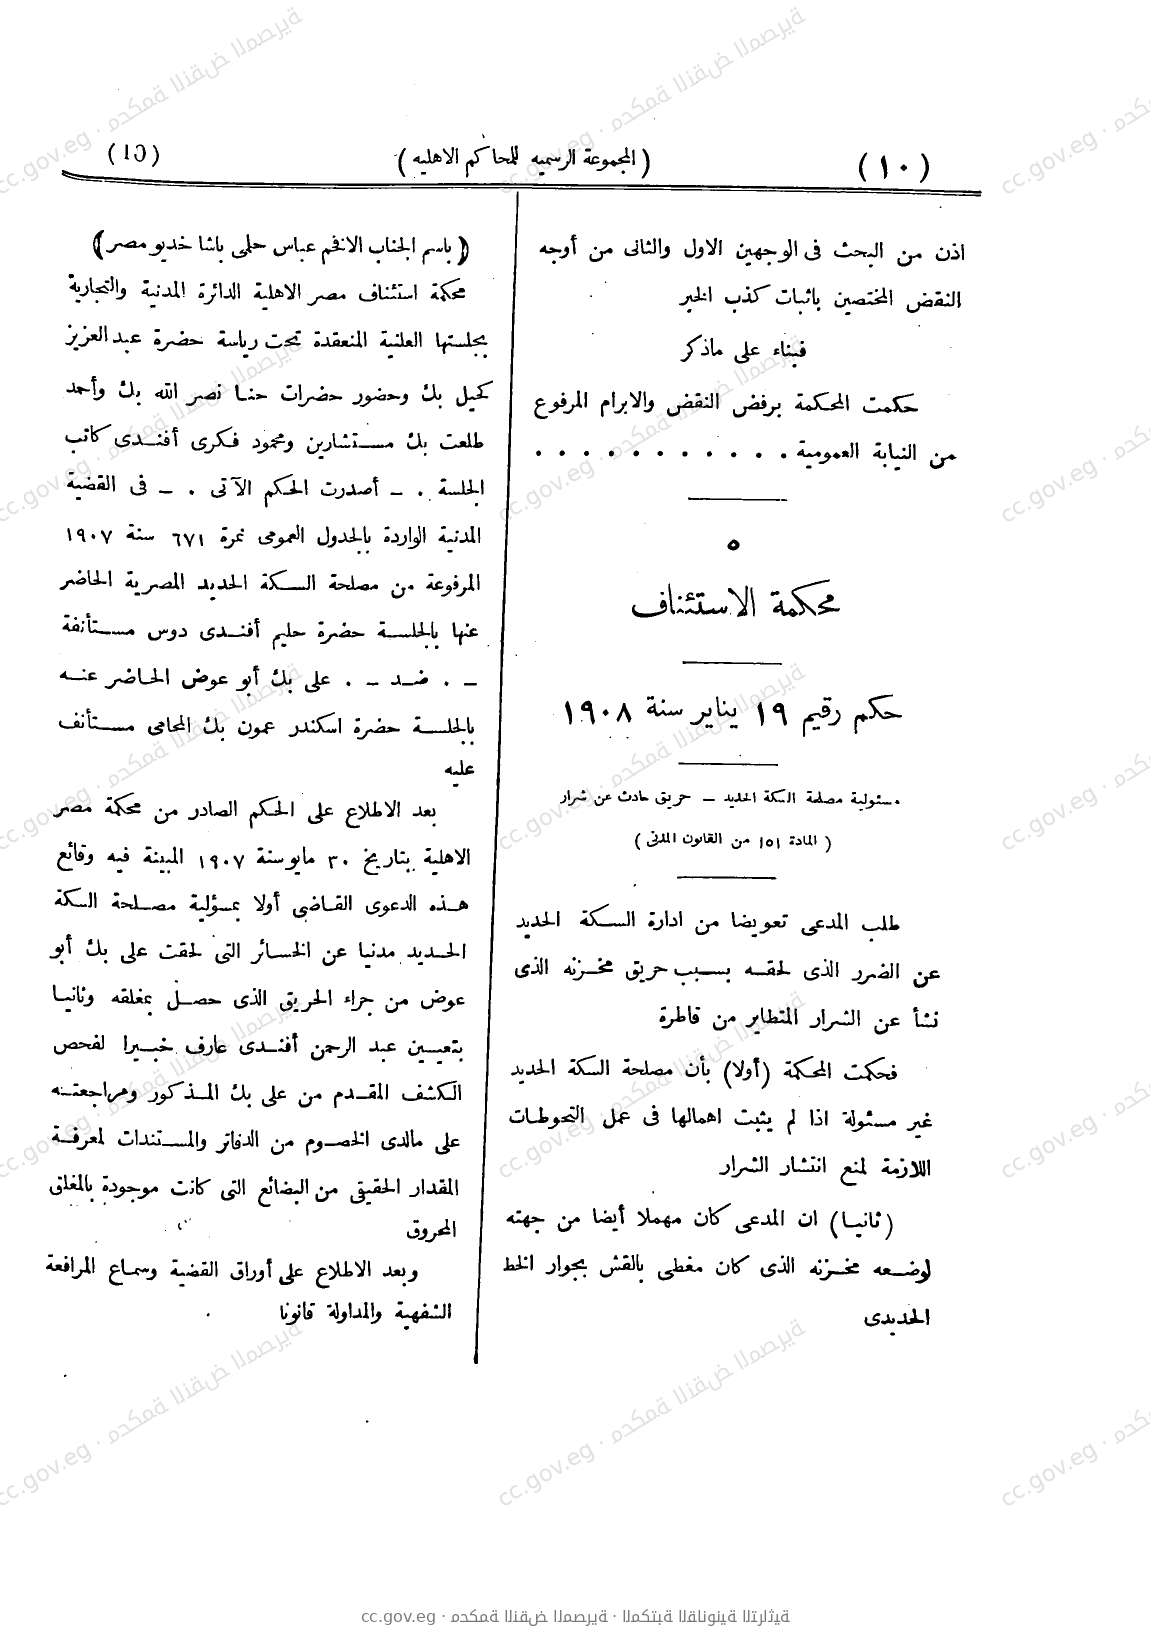 (١٠)
(المجموعة الرسميه للمحاكم الاهليه)
(10)
اذن من البحث فى الوجهين الاول والثانى من أوجه
النقض المختصين باثبات كذب الخبر
فبناء على ماذكر
حكمت المحكمة برفض النقض والابرام المرفوع
من النيابة العمومية . . . . . . . . . . .
٥
محكمة الاستئناف
حكم رقيم ١٩ يناير سنة ١٩٠٨
مسئولية مصلحة السكة الحديد – حريق حادث عن شرار
( المادة ١٥١ من القانون المدنى )
طلب المدعى تعويضا من ادارة السكة الحديد
عن الضرر الذى لحقه بسبب حريق مخزنه الذى
نشأ عن الشرار المتطاير من قاطرة
فحكمت المحكمة (أولا) بأن مصلحة السكة الحديد
غير مسئولة اذا لم يثبت اهمالها فى عمل التحوطات
اللازمة لمنع انتشار الشرار
(ثانيا) ان المدعى كان مهملا أيضا من جهته
لوضعه مخزنه الذى كان مغطى بالقش بجوار الخط
الحديدى
(باسم الجناب الافخم عباس حلمى باشا خديو مصر)
محكمة استئناف مصر الاهلية الدائرة المدنية والتجارية
بجلستها العلنية المنعقدة تحت رياسة حضرة عبد العزيز
كحيل بك وحضور حضرات حنا نصر الله بك وأحمد
طلعت بك مستشارين ومحمود فكرى أفندى كاتب
الجلسة . – أصدرت الحكم الآتى . – فى القضية
المدنية الواردة بالجدول العمومى نمرة ٦٧١ سنة ١٩٠٧
المرفوعة من مصلحة السكة الحديد المصرية الحاضر
عنها بالجلسة حضرة حليم أفندى دوس مستأنفة
– . ضد – . على بك أبو عوض الحاضر عنه
بالجلسة حضرة اسكندر عمون بك المحامى مستأنف
عليه
بعد الاطلاع على الحكم الصادر من محكمة مصر
الاهلية بتاريخ ٣٠ مايو سنة ١٩٠٧ المبينة فيه وقائع
هذه الدعوى القاضى أولا بمسؤلية مصلحة السكة
الحديد مدنيا عن الخسائر التى لحقت على بك أبو
عوض من جراء الحريق الذى حصل بمغلقه وثانيا
بتعيين عبد الرحمن أفندى عارف خبيرا لفحص
الكشف المقدم من على بك المذكور ومراجعته
على مالدى الخصوم من الدفاتر والمستندات لمعرفة
المقدار الحقيقى من البضائع التى كانت موجودة بالمغلق
المحروق
وبعد الاطلاع على أوراق القضية وسماع المرافعة
الشفهية والمداولة قانونا
cc.gov.eg · محكمة النقض المصرية · المكتبة القانونية التراثية